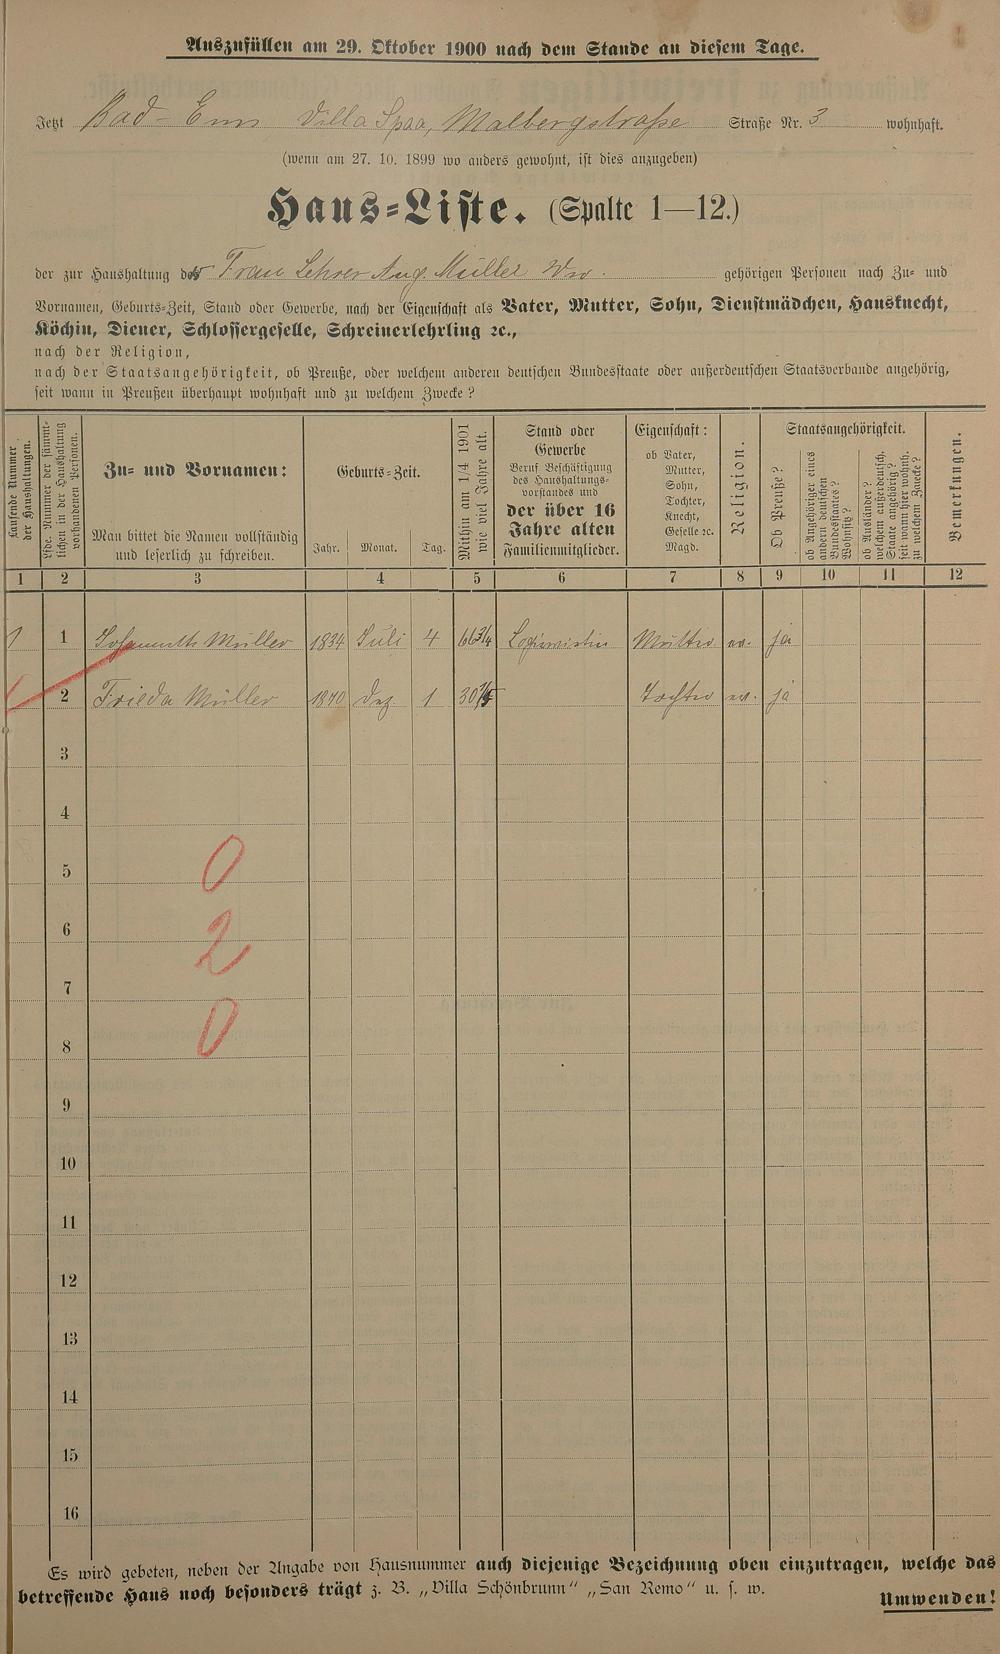 Auszufüllen am 29. Oktober 1900 nach dem Stande an diesem Tage.
Jetzt Bad-Ems Villa Spaa, Malbergstraße Straße Nr. 3 wohnhaft.
(wenn am 27. 10. 1899 wo anders gewohnt, ist dies anzugeben)
Haus-Liste. (Spalte 1—12.)
der zur Haushaltung der Frau Lehrer Aug. Müller Ww. gehörigen Personen nach Zu- und
Vornamen, Geburts-Zeit, Stand oder Gewerbe, nach der Eigenschaft als Vater, Mutter, Sohn, Dienstmädchen, Hausknecht,
Köchin, Diener, Schlossergeselle, Schreinerlehrling ꝛc.,
nach der Religion,
nach der Staatsangehörigkeit, ob Preuße, oder welchem anderen deutschen Bundesstaate oder außerdeutschen Staatsverbande angehörig,
seit wann in Preußen überhaupt wohnhaft und zu welchem Zwecke?
Laufende Nummer
der Haushaltungen.
Lfde. Nummer der sämmt-
lichen in der Haushaltung
vorhandenen Personen.
Zu- und Vornamen:
Man bittet die Namen vollständig
und leserlich zu schreiben.
Geburts-Zeit.
Jahr. Monat. Tag.
Mithin am 1/4 1901
wie viel Jahre alt.
Stand oder
Gewerbe
Beruf Beschäftigung
des Haushaltungs-
vorstandes und
der über 16
Jahre alten
Familienmitglieder.
Eigenschaft:
ob Vater,
Mutter,
Sohn,
Tochter,
Knecht,
Geselle ꝛc.
Magd.
Religion.
Staatsangehörigkeit.
Ob Preuße?
ob Angehöriger eines
andern deutschen
Bundesstaates?
Wohnsitz?
ob Ausländer?
welchem außerdeutsch.
Staate angehörig?
seit wann hier wohnh.
zu welchem Zwecke?
Bemerkungen.
1 2 3 4 5 6 7 8 9 10 11 12
1 1 Müller 1834 Juli 4 66 3/4 Logiswirtin Mutter ev. ja
2 Frieda Müller 1870 Dez. 1 30 Tochter ev. ja
3
4
5
0
6
2
7
0
8
9
10
11
12
13
14
15
16
Es wird gebeten, neben der Angabe von Hausnummer auch diejenige Bezeichnung oben einzutragen, welche das
betreffende Haus noch besonders trägt z. B. „Villa Schönbrunn" „San Remo" u. s. w.
Umwenden!